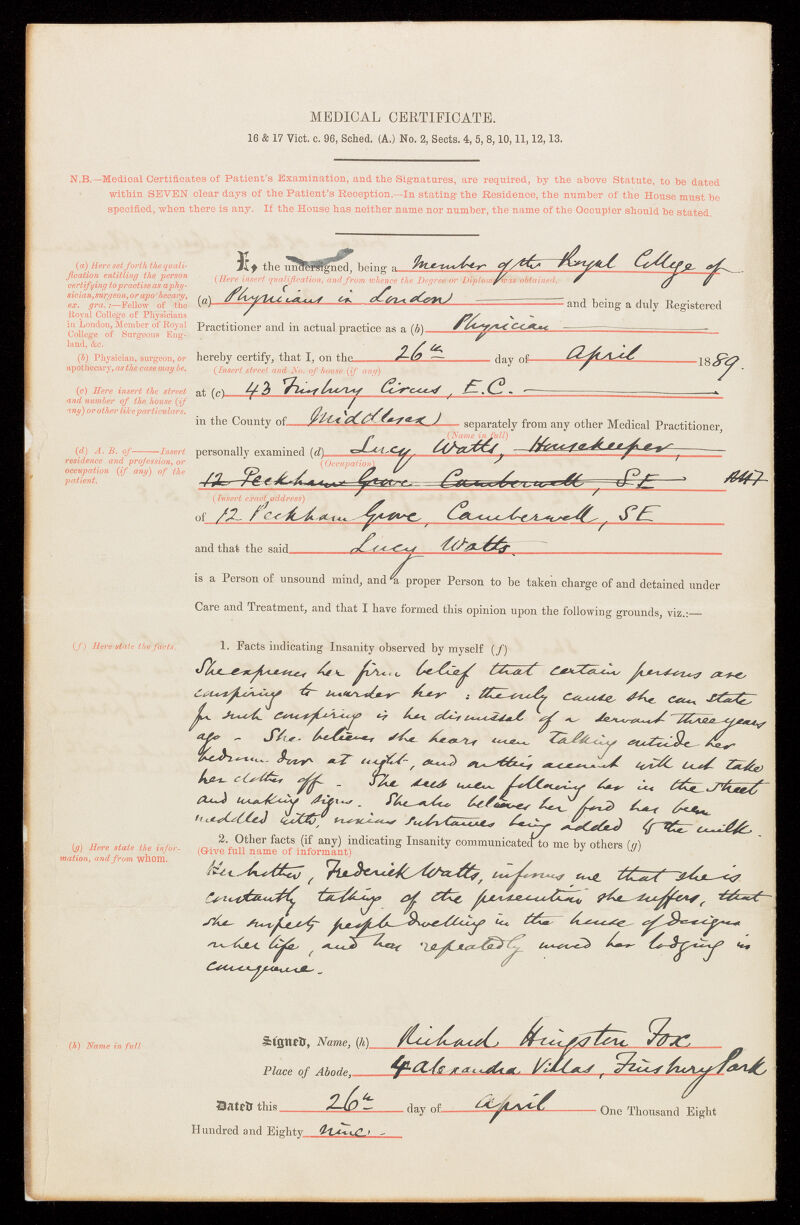 MEDICAL CERTIFICATE.
16 & 17 Vict. c. 96, Sched. (A.) No. 2, Sects. 4, 5, 8, 10, 11, 12, 13.
N.B.—Medical Certificates of Patient's Examination, and the Signatures, are required, by the above Statute, to be dated
within SEVEN clear days of the Patient's Reception.—In stating the Residence, the number of the House must be
specified, when there is any. If the House has neither name nor number, the name of the Occupier should be stated.
(a) Here set forth the quali-
fication entitling the person
certifying to practise as a phy-
sician, surgeon, or apothecary,
ex. gra.:—Fellow of the
Royal College of Physicians
in London, Member of Royal
College of Surgeons Eng-
land, &c.
(b) Physician, surgeon, or
apothecary, as the case may be.
(c) Here insert the street
and number of the house (if
any) or other like particulars.
(d) A. B. of —— Insert
residence and profession, or
occupation (if any) of the
patient.
I, the undersigned, being a Member of the Royal College of
(Here insert qualification, and from whence the Degree or Diploma was obtained.
(a) Physicians in London and being a duly Registered
Practitioner and in actual practice as a (b) Physician
hereby certify, that I, on the 26th day of April 1889.
(Insert street and No. of house (if any)
at (c) 43 Finsbury Circus, E.C.
in the County of Middlesex separately from any other Medical Practitioner,
(Name in full)
personally examined (d) Lucy Watts, Housekeeper,
(Occupation)
12 Peckham Grove Camberwell, S.E RHF
(Insert exact address)
of 12 Peckham Grove, Camberwell, SE
and that the said Lucy Watts.
is a Person of unsound mind, and a proper Person to be taken charge of and detained under
Care and Treatment, and that I have formed this opinion upon the following grounds, viz.:—
(f) Here state the facts.
1. Facts indicating Insanity observed by myself (f)
She expresses her firm belief that certain persons are
conspiring to murder her : the only cause she can state
for such conspiring is her dismissal of a servant three years
ago - She believes she hears men talking outside her
bedroom door at night, and on this account will not take
her clothes off - She sees men following her in the street
and making signs. She also believes her food has been
meddled with, noxious substances being added to the milk.
(g) Here state the infor-
mation, and from whom.
2. Other facts (if any) indicating Insanity communicated to me by others (g)
(Give full name of informant)
Her brother, Frederick Watts, informs me that she is
constantly talking of the persecution she suffers, that
she suspects people dwelling in the house of designs
on her life, and has repeatedly moved her lodging in
consequence.
(h) Name in full
Signed, Name, (h) Richard Hingston Fox
Place of Abode, 4 Alexandra Villas, Finsbury Park
Dated this 26th day of April One Thousand Eight
Hundred and Eighty nine.